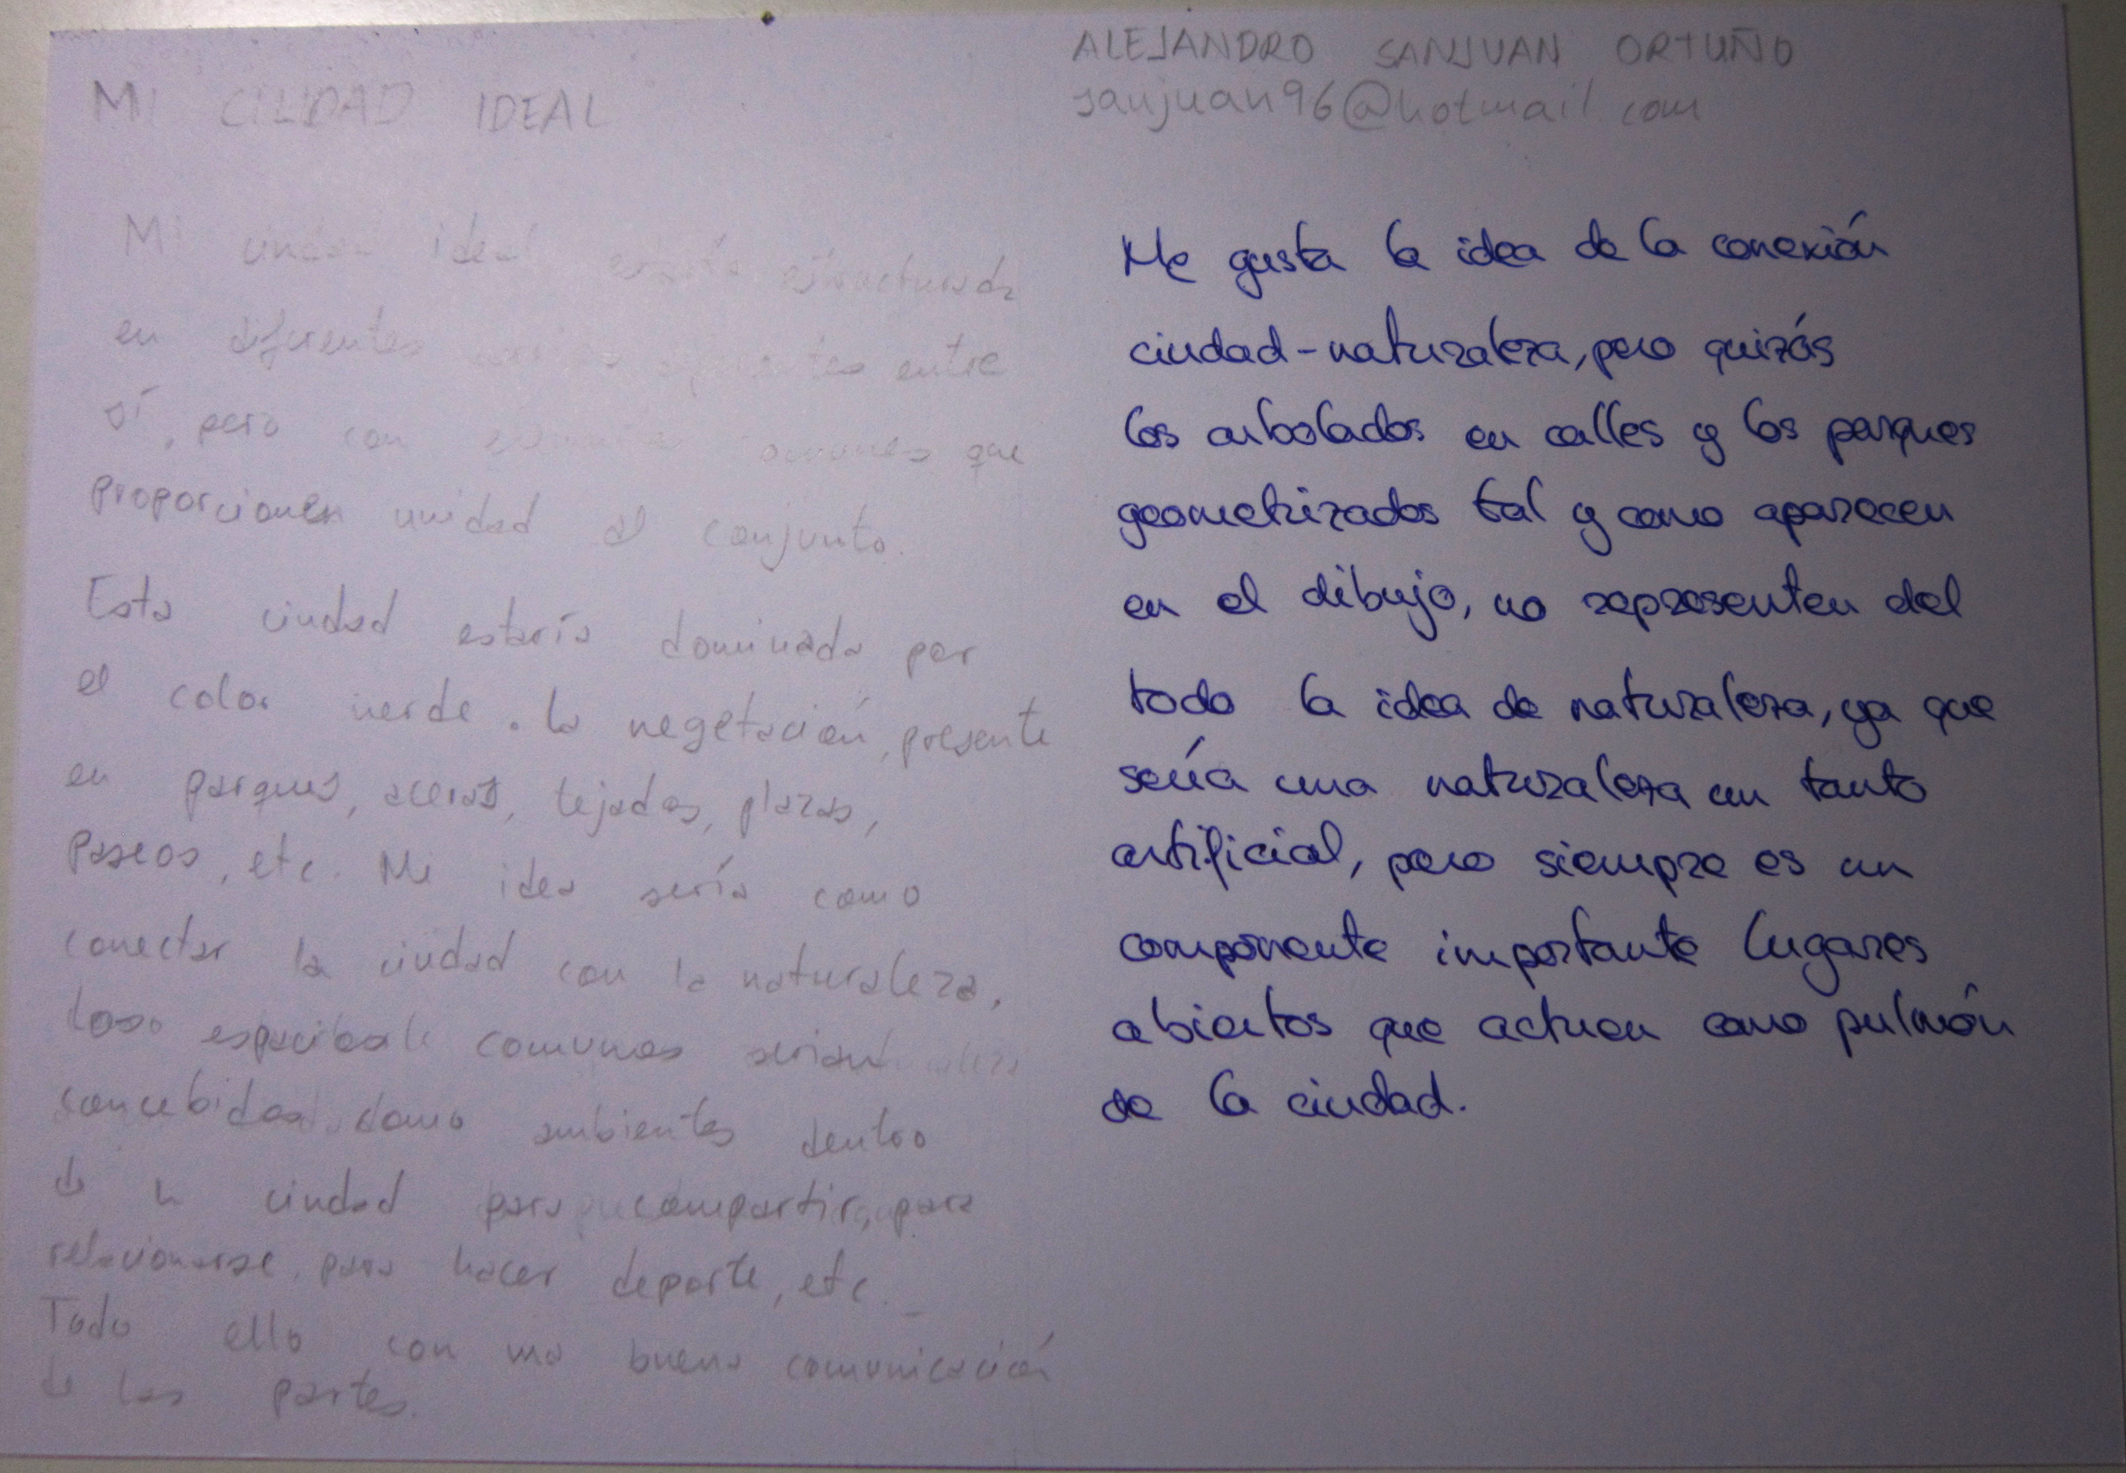 MI CIUDAD IDEAL
Mi ciudad ideal estaría estructurada
en diferentes entre
sí, pero con comunes que
proporcionen unidad al conjunto.
Esta ciudad estaría dominada por
el color verde. La vegetación, presente
en parques, aceras, tejados, plazas,
paseos, etc. Mi idea sería como
conectar la ciudad con la naturaleza,
comunes serian
como ambientes dentro
de la ciudad para compartir, para
relacionarse, para hacer deporte, etc.
Todo ello con una buena comunicación
de las partes.
ALEJANDRO SANJUAN ORTUÑO
sanjuan96@hotmail.com
Me gusta la idea de la conexión
ciudad-naturaleza, pero quizás
los arbolados en calles y los parques
geometrizados tal y como aparecen
en el dibujo, no representen del
todo la idea de naturaleza, ya que
sería una naturaleza un tanto
artificial, pero siempre es un
componente importante lugares
abiertos que actuen como pulmón
de la ciudad.